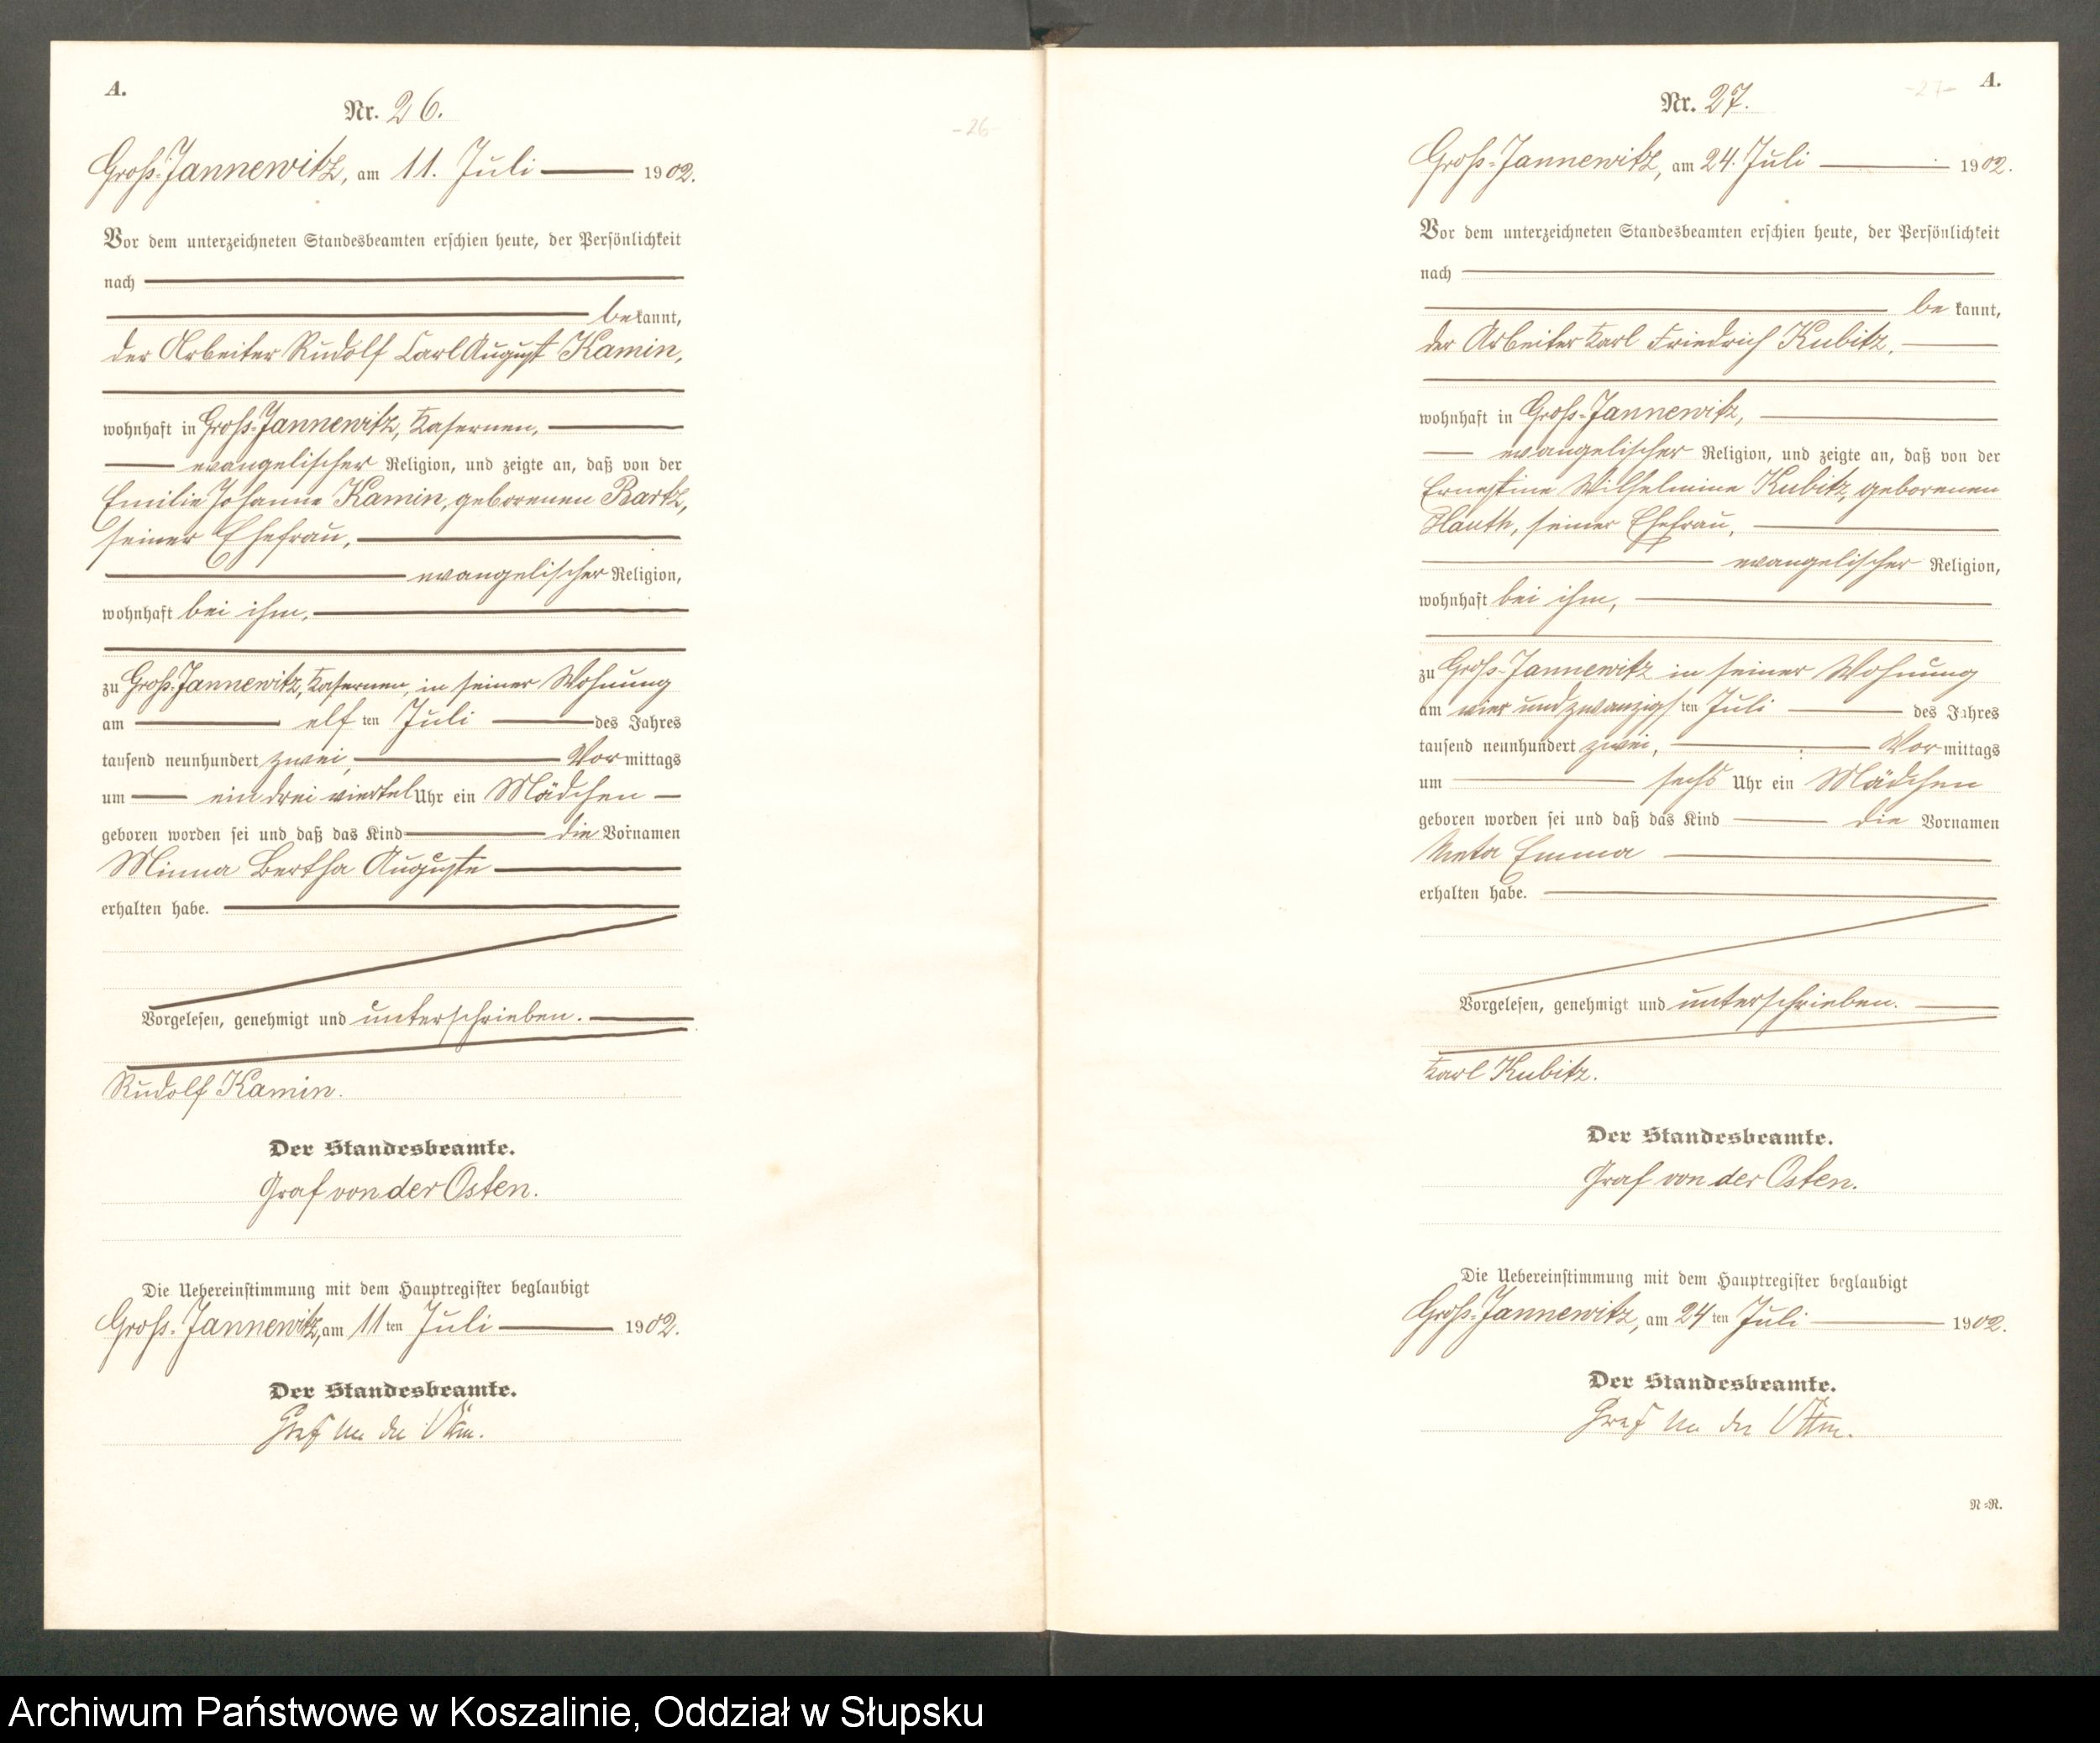 A.
Nr. 26.
-26-
Groß-Jannewitz, am 11. Juli 1902.
Vor dem unterzeichneten Standesbeamten erschien heute, der Persönlichkeit
nach
bekannt,
der Arbeiter Rudolf Carl August Kamin,
wohnhaft in Groß-Jannewitz, Kasernen,
evangelischer Religion, und zeigte an, daß von der
Emilie Johanne Kamin, geborenen Bartz,
seiner Ehefrau,
evangelischer Religion,
wohnhaft bei ihm,
zu Groß-Jannewitz, Kasernen, in seiner Wohnung
am elf ten Juli des Jahres
tausend neunhundert zwei, Vormittags
um ein drei viertel Uhr ein Mädchen
geboren worden sei und daß das Kind die Vornamen
Minna Bertha Auguste
erhalten habe.
Vorgelesen, genehmigt und unterschrieben.
Rudolf Kamin.
Der Standesbeamte.
Graf von der Osten.
Die Uebereinstimmung mit dem Hauptregister beglaubigt
Groß-Jannewitz, am 11 ten Juli 1902.
Der Standesbeamte.
Graf von der Osten.
A.
-27-
Nr. 27.
Groß-Jannewitz, am 24. Juli 1902.
Vor dem unterzeichneten Standesbeamten erschien heute, der Persönlichkeit
nach
bekannt,
der Arbeiter Karl Friedrich Kubitz,
wohnhaft in Groß-Jannewitz,
evangelischer Religion, und zeigte an, daß von der
Ernestine Wilhelmine Kubitz, geborenen
Hauth, seiner Ehefrau,
evangelischer Religion,
wohnhaft bei ihm,
zu Groß-Jannewitz in seiner Wohnung
am vier und zwanzigs ten Juli des Jahres
tausend neunhundert zwei, Vormittags
um sechs Uhr ein Mädchen
geboren worden sei und daß das Kind die Vornamen
Meta Emma
erhalten habe.
Vorgelesen, genehmigt und unterschrieben.
Karl Kubitz.
Der Standesbeamte.
Graf von der Osten.
Die Uebereinstimmung mit dem Hauptregister beglaubigt
Groß-Jannewitz, am 24 ten Juli 1902.
Der Standesbeamte.
Graf von der Osten.
N=R.
Archiwum Państwowe w Koszalinie, Oddział w Słupsku